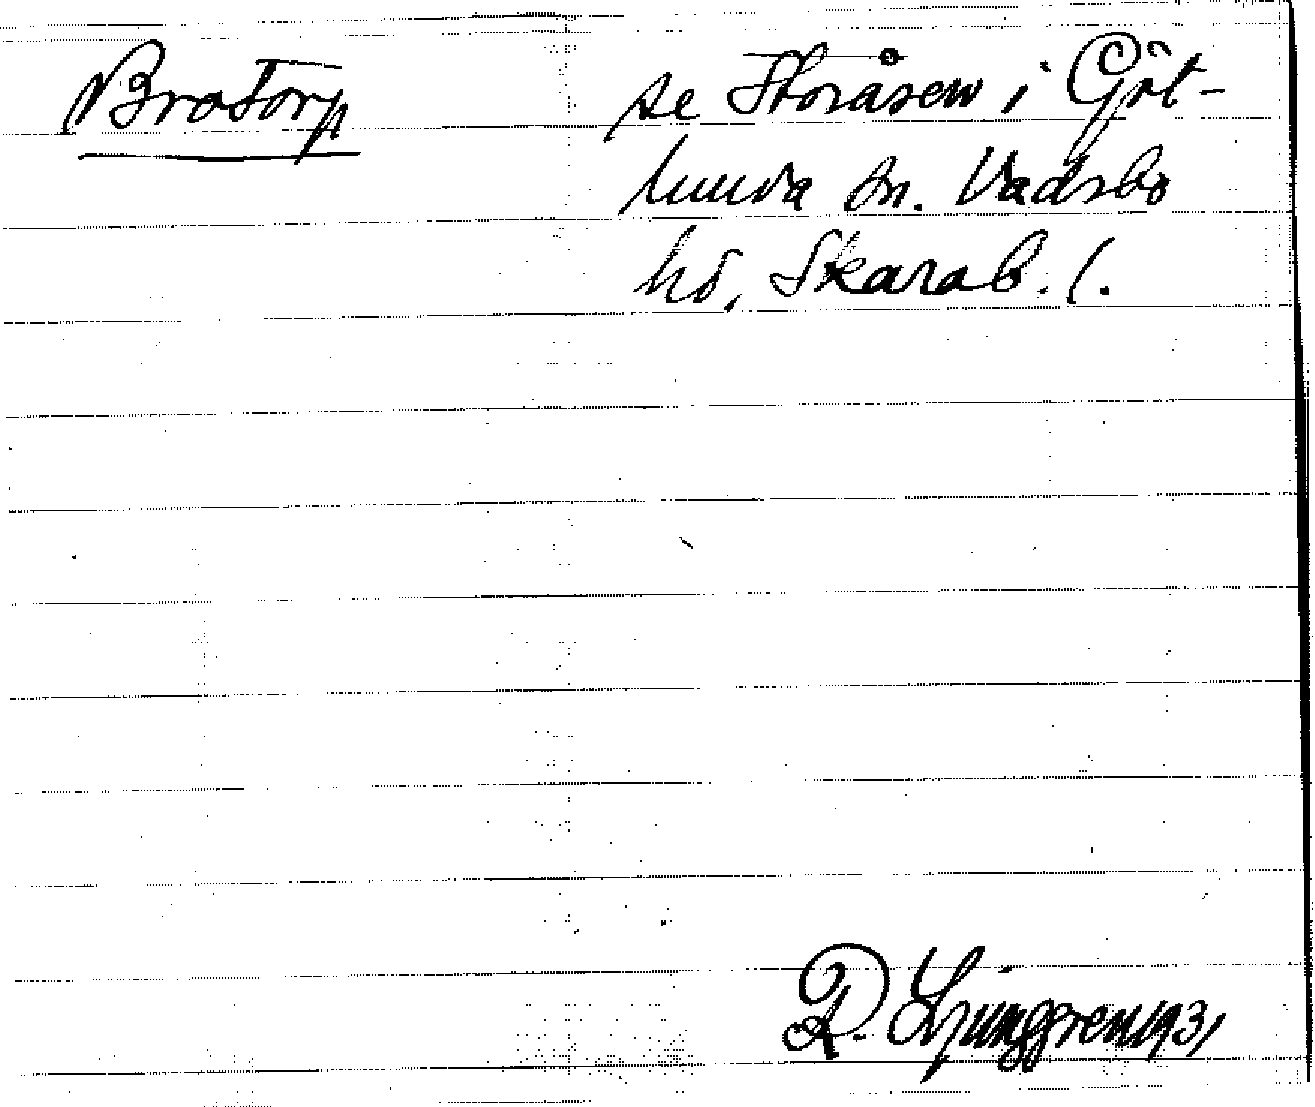 Brotorp
se Storåsen i Göt-
lunda sn. Vadsbo
hd, Skarab. l.
R. Ljunggren 1931